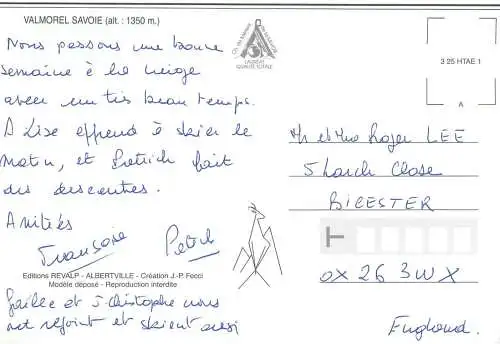 VALMOREL SAVOIE (alt. : 1350 m.)
Nous passons une bonne
semaine à la neige
avec un très beau temps.
A Lise apprend à skier le
matin, et Patrick fait
des descentes.
Amitiés
Françoise Patrick
Editions REVALP - ALBERTVILLE - Création J.-P. Fecci
Modèle déposé - Reproduction interdite
et J-Christophe nous
ont rejoint et skient aussi
LAURÉAT
QUALITÉ TOTALE
3 25 HTAE 1
A
Mr et Mrs Roger LEE
5 Larch Close
BICESTER
OX 26 3WX
England.